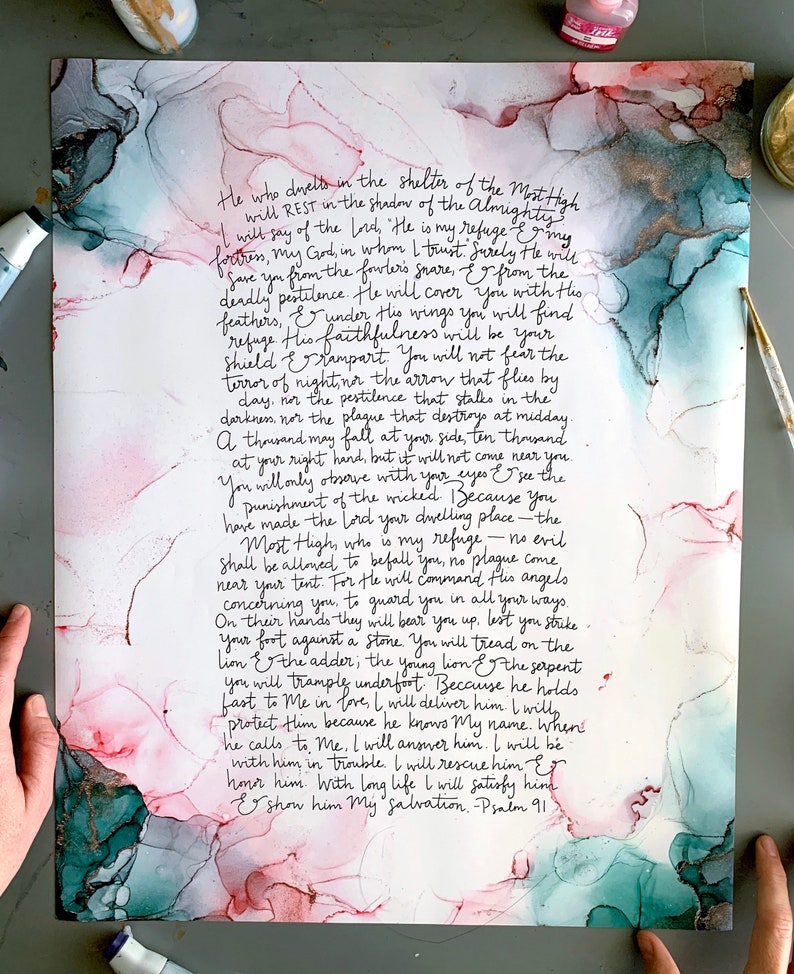 He who dwells in the shelter of the Most High
will REST in the shadow of the Almighty
I will say of the Lord, "He is my refuge & my
fortress, My God, in whom I trust." Surely He will
save you from the fowler's snare, & from the
deadly pestilence. He will cover you with His
feathers, & under His wings you will find
refuge. His faithfulness will be your
shield & rampart. You will not fear the
terror of night, nor the arrow that flies by
day, nor the pestilence that stalks in the
darkness, nor the plague that destroys at midday.
A thousand may fall at your side, ten thousand
at your right hand, but it will not come near you.
You will only observe with your eyes & see the
punishment of the wicked. Because you
have made the Lord your dwelling place — the
Most High, who is my refuge — no evil
shall be allowed to befall you, no plague come
near your tent. For He will command His angels
concerning you, to guard you in all your ways.
On their hands they will bear you up, lest you strike
your foot against a stone. You will tread on the
lion & the adder; the young lion & the serpent
you will trample underfoot. Because he holds
fast to Me in love, I will deliver him. I will
protect Him because he knows My name. When
he calls to Me, I will answer him. I will be
with him in trouble. I will rescue him &
honor him. With long life I will satisfy him
& show him My salvation. -Psalm 91